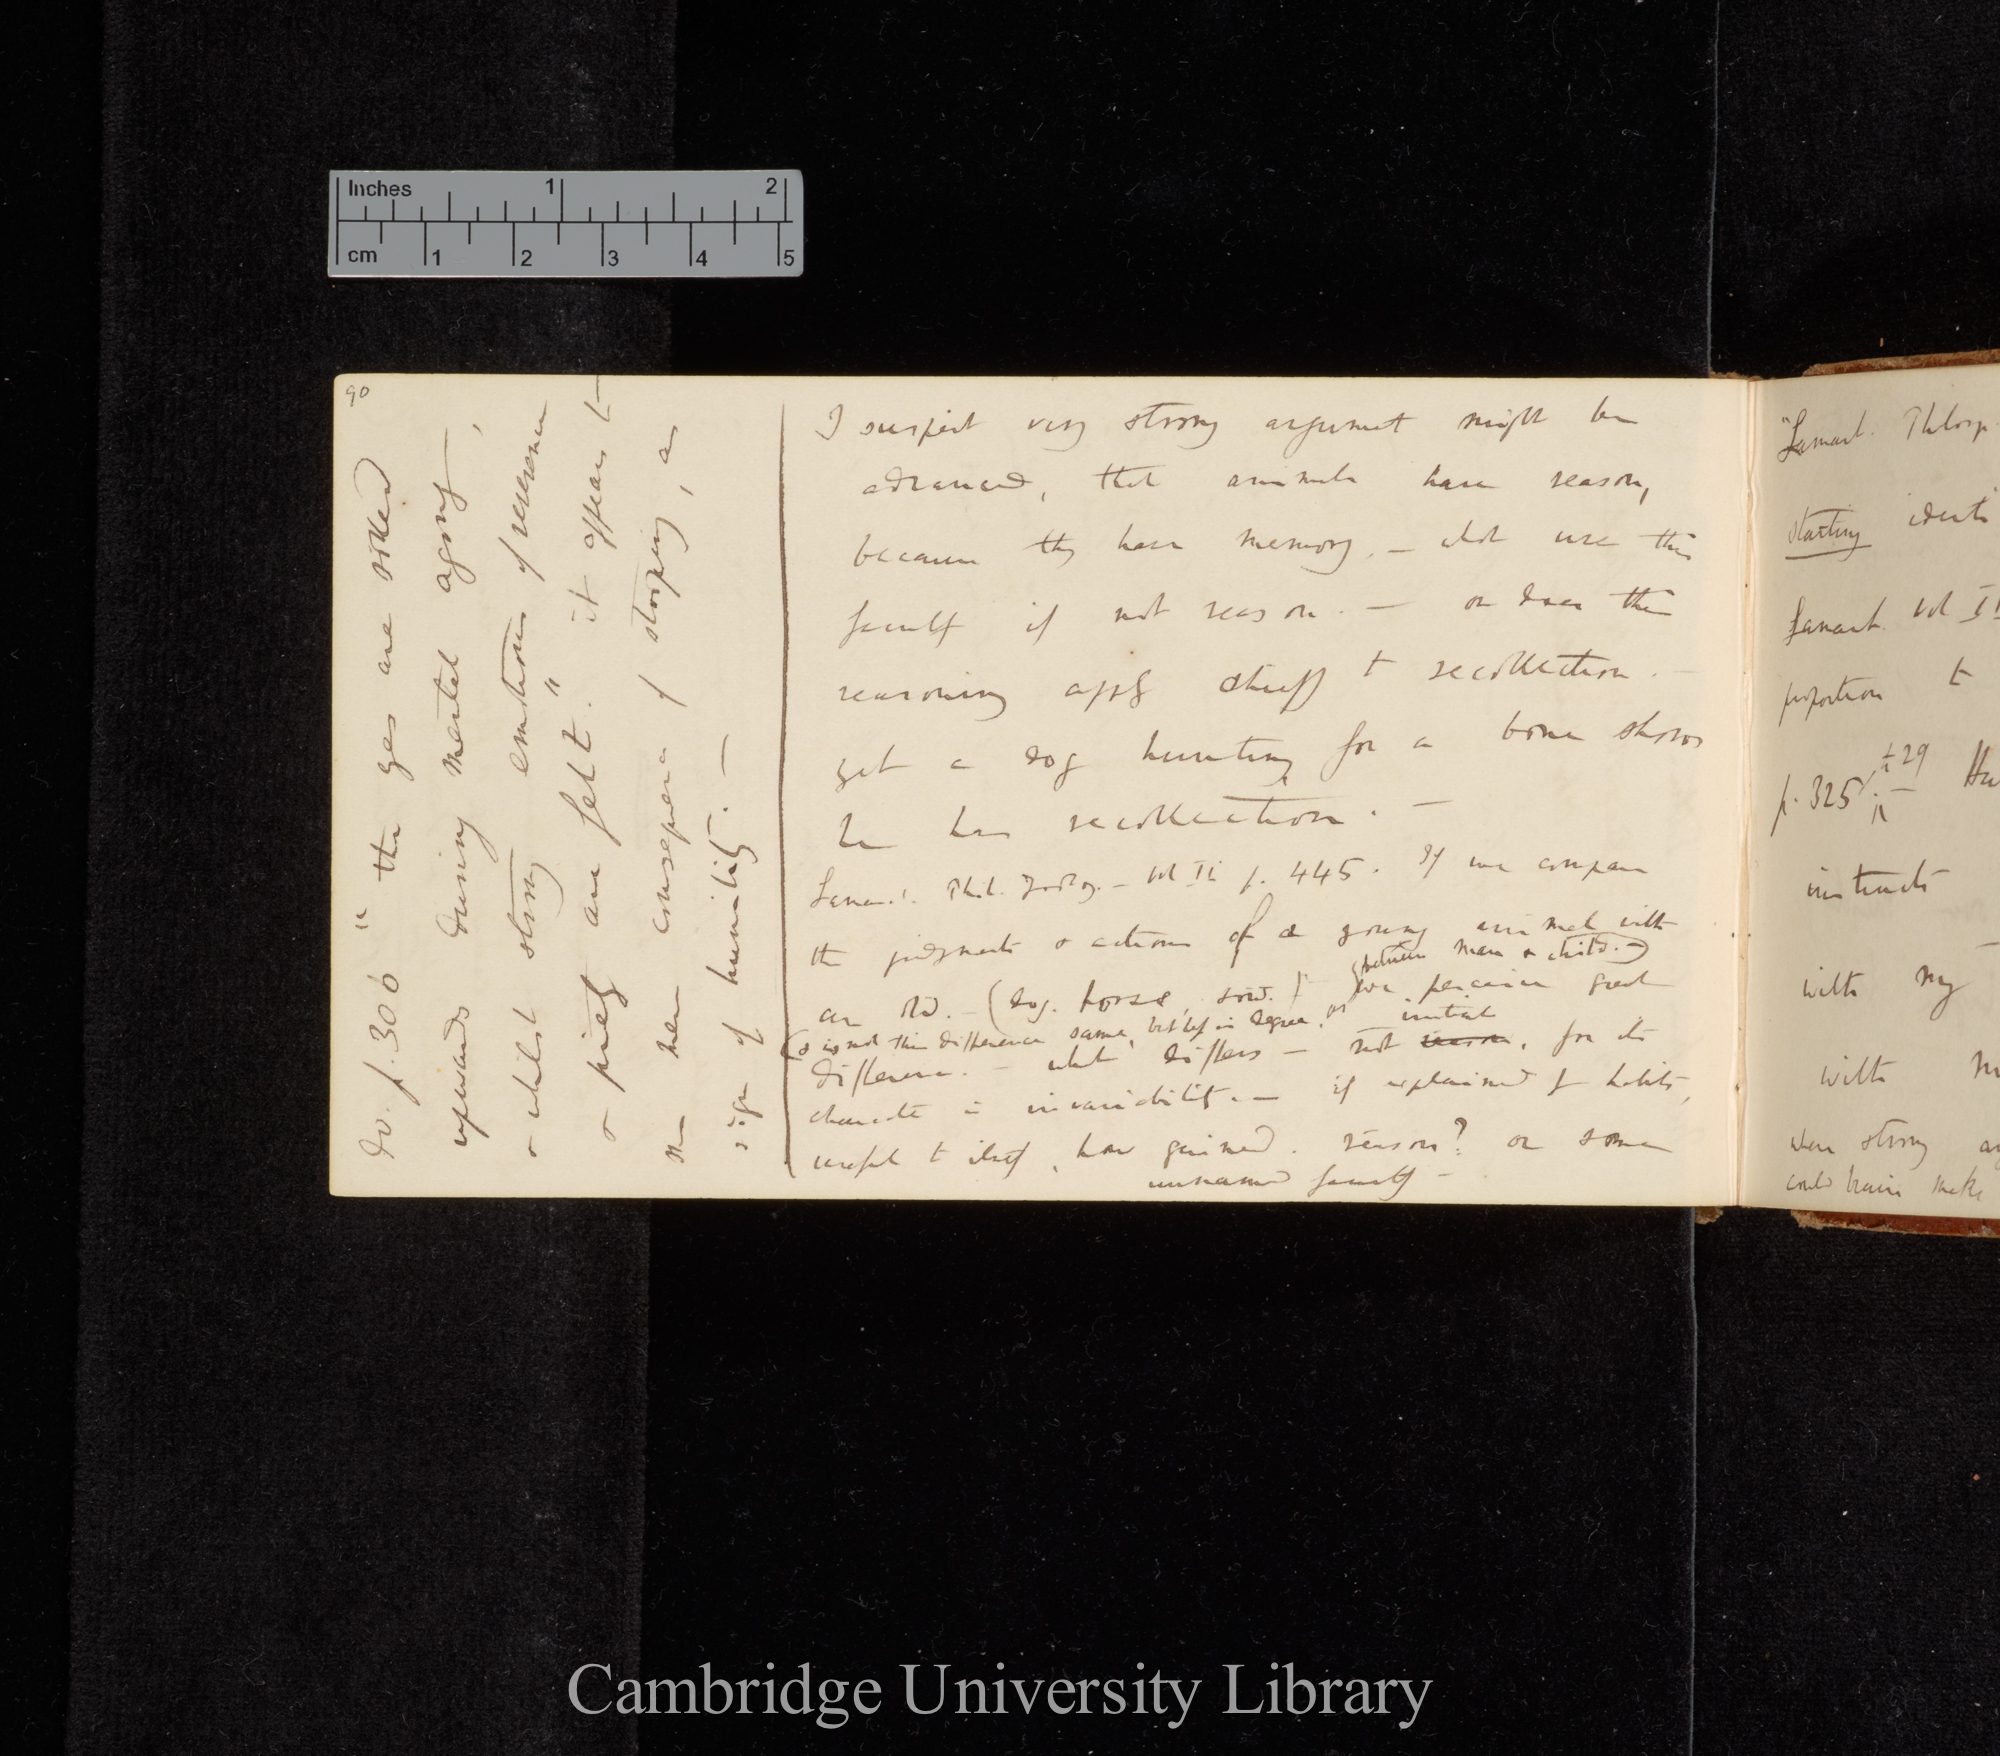 Inches 1 2
cm 1 2 3 4 5
90
do. p. 306 "the eyes are rolled
upwards during mental agony,
& whilst strong emotions of reverence
& piety are felt." it appears to
me mere consequence of stooping, as
sign of humility. —
I suspect very strong argument might be
advanced, that animals have reason,
because they have memory. — what use this
faculty if not reason. — or does this
reasoning apply chiefly to recollection. —
yet a dog hunting for a bone shows
he has recollection. —
Lamarck. Phil. Zoolog. — Vol II p. 445. If we compare
the judgments & actions of a young animal with
between man & child. —)
an old. — (dog. horse, &
we perceive great
(& is not this difference same, but less in degree, as
initial
difference. — what differs — not reason, for its
character is invariability. — if explained by habits,
useful to itself, how gained. reason? or some
unnamed faculty —
"Lamarck. Philosop
starting
Lamarck. Vol II
proportion to
p. 325
+29
instincts
with my
with
when strong
could brain make
Cambridge University Library